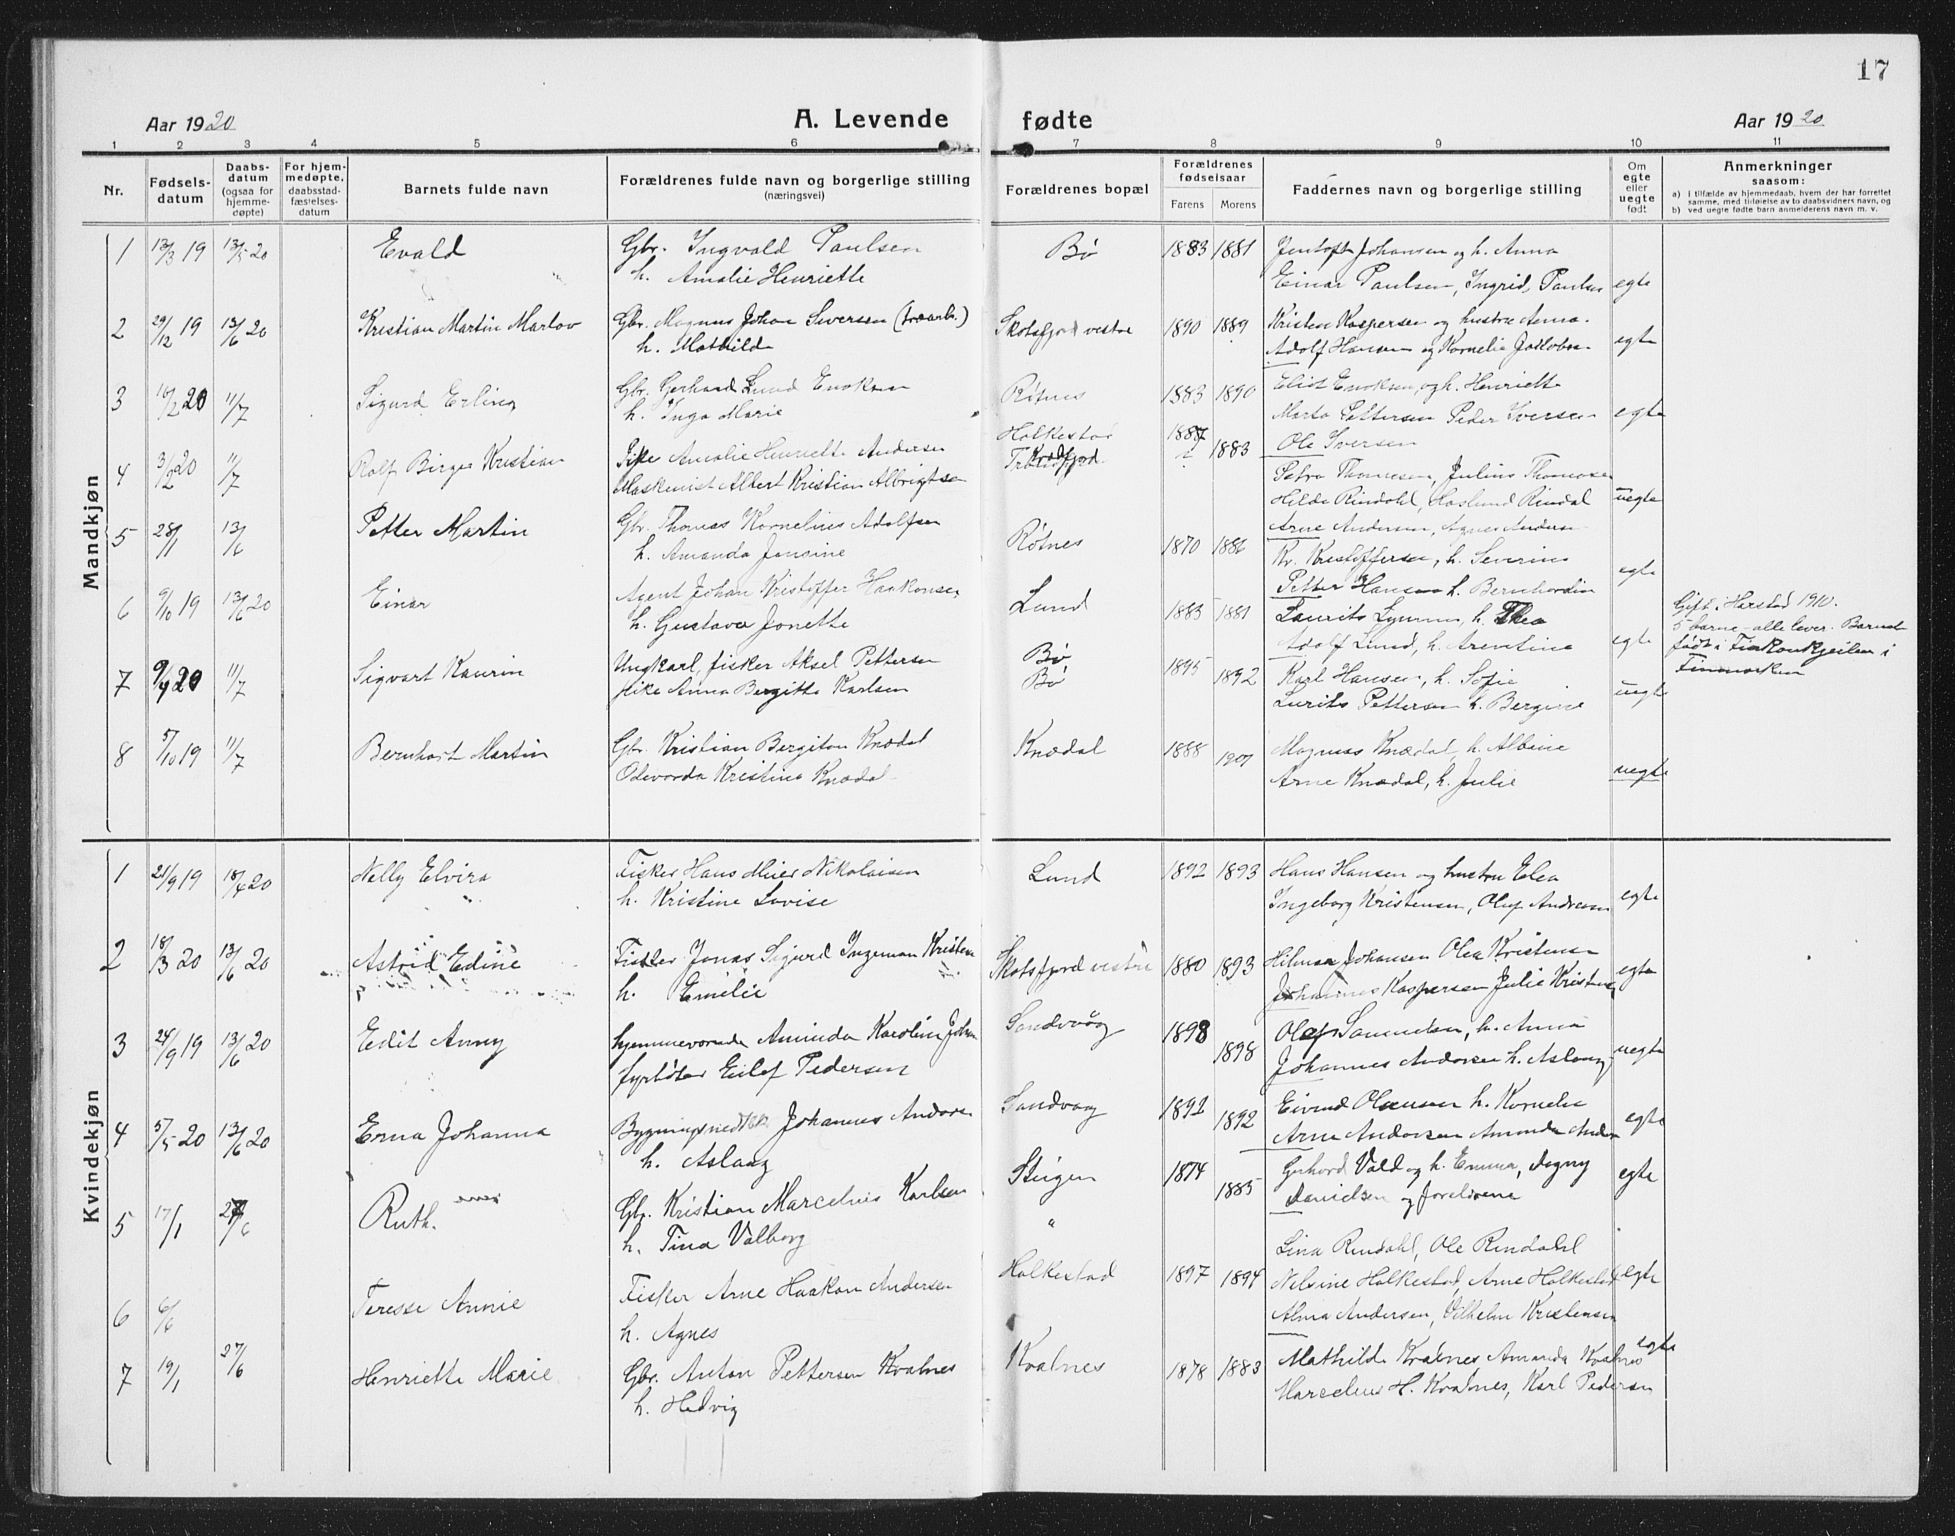 17
Aar 1920 A. Levende fødte Aar 1920
1 2 3 4 5 6 7 8 9 10 11
Nr. Fødsels-datum Daabs-datum (ogsaa for hjemme-døpte) For hjem-medøpte, daabsstad-fæstelses-datum Barnets fulde navn Forældrenes fulde navn og borgerlige stilling (næringsvei) Forældrenes bopæl Forældrenes fødselsaar Farens Morens Faddernes navn og borgerlige stilling Om egte eller uegte født Anmerkninger saasom:
a) i tilfælde av hjemmedaab, hvem der har forrettet samme, med tilføielse av to daabsvidners navn, og
b) ved uegte fødte barn anmelderens navn m. v.
Mandkjøn
1 13/3 19 13/5 20 Evald Gbr. Ingvald Paulsen Bø 1883 1881 Jentoft Johansen og h. Anna
h. Amalie Henriette Einar Paulsen, Ingrid Paulsen egte
2 29/12 19 13/6 20 Kristian Martin Marlov Gbr. Magnus Johan Sivertsen Skotsfjord vestre 1890 1889 Kristen Kaspersen og hustru Anna
h. Mathilde Adolf Hansen og Kornelie Jakobsen egte
3 16/2 20 11/7 Sigurd Erling Gbr. Gerhard Lund Enoksen Røtnes 1883 1890 Enoksen og h. Henriette
h. Inga Marie Marta Pettersen Peder Iversen egte
Ole Iversen
4 3/2 20 11/7 Rolf Birger Kristian Pike Amalie Henriette Andersen Holkestad 1887 1883
Maskinist Albert Kristian Albrigtsen Petra Thomesen, Julius Thomesen
Hilda Rindahl, Haslund Rindal uegte
Arne Andersen, Agnes Andersen
5 28/1 13/6 Petter Martin Gbr. Thomas Kornelius Adolfsen Røtnes 1870 1886 Kr. Kristoffersen, h. Severine
h. Amanda Jensine Petter Hansen h. Bernhardin egte
6 9/10 19 13/6 20 Einar Agent Johan Kristoffer Haakonsen Lund 1883 1881 Laurits Lynum, h. Thea Gift i Harstad 1910.
h. Gustava Jonette Adolf Lund, h. Arentine egte 5 barne - alle lever. Barnet
født i Finkonkjeilen i
Finmarken
7 9/4 20 11/7 Sigvart Kaurin Ungkarl, fisker Aksel Pettersen Bø 1895 1892 Karl Hansen, h. Sofie
Pike Anna Bergitte Karlsen Bø Lurits Pettersen h. Bergine uegte
8 5/10 19 11/7 Bernhart Martin Gbr. Kristian Bergiton Knædal Knædal 1888 1901 Magnus Knædal, h. Albine
Odevarda Kristine Knædal Arne Knædal, h. Julie uegte
Kvindekjøn
1 21/9 19 18/4 20 Nelly Elvira Fisker Hans Meier Nikolaisen Lund 1892 1893 Hans Hansen og hustru Elea
h. Kristine Lovise Ingeborg Kristensen, Oluf Andresen egte
2 18/3 20 13/6 20 Astrid Edine Fisker Jonas Sigurd Ingeman Kristensen Skotsfjord vestre 1880 1893 Hilmar Johansen Olea Kristensen
h. Emelie Johannes Kaspersen Julie Kristensen egte
3 24/9 19 13/6 20 Edit Anny hjemmeværende Aminda Karoline Johan Sandvåg 1898 1898 Olaf Samuelsen, h. Anna
fyrbøter Eilef Pedersen Johannes Andersen h. Aslaug uegte
4 5/5 20 13/6 20 Erna Johanna Johannes Andersen Sandvaag 1892 1892 Eivind Olausen h. Kornelie
h. Aslaug Arne Andersen Amanda Andersen egte
5 17/1 27/6 Ruth. Gbr. Kristian Marcelius Karlsen Steigen 1874 1885 Gerhard Vald og h. Emma, Dagny
h. Tina Valborg " Danielsen og forældrene egte
6 6/6 Teresse Annie Fisker Arne Haakon Andersen Holkestad 1897 1894 Lina Rindahl, Ole Rindahl
h. Agnes Nelsine Holkestad, Arne Holkestad egte
Alma Andersen, Vilhelm Kristensen
7 19/1 27/6 Henriette Marie Gbr. Anton Pettersen Kvalnes Kvalnes 1878 1883 Mathilde Kvalnes, Amanda Kvalnes egte
h. Hedvig Marcelius H. Kvalnes, Karl Pedersen